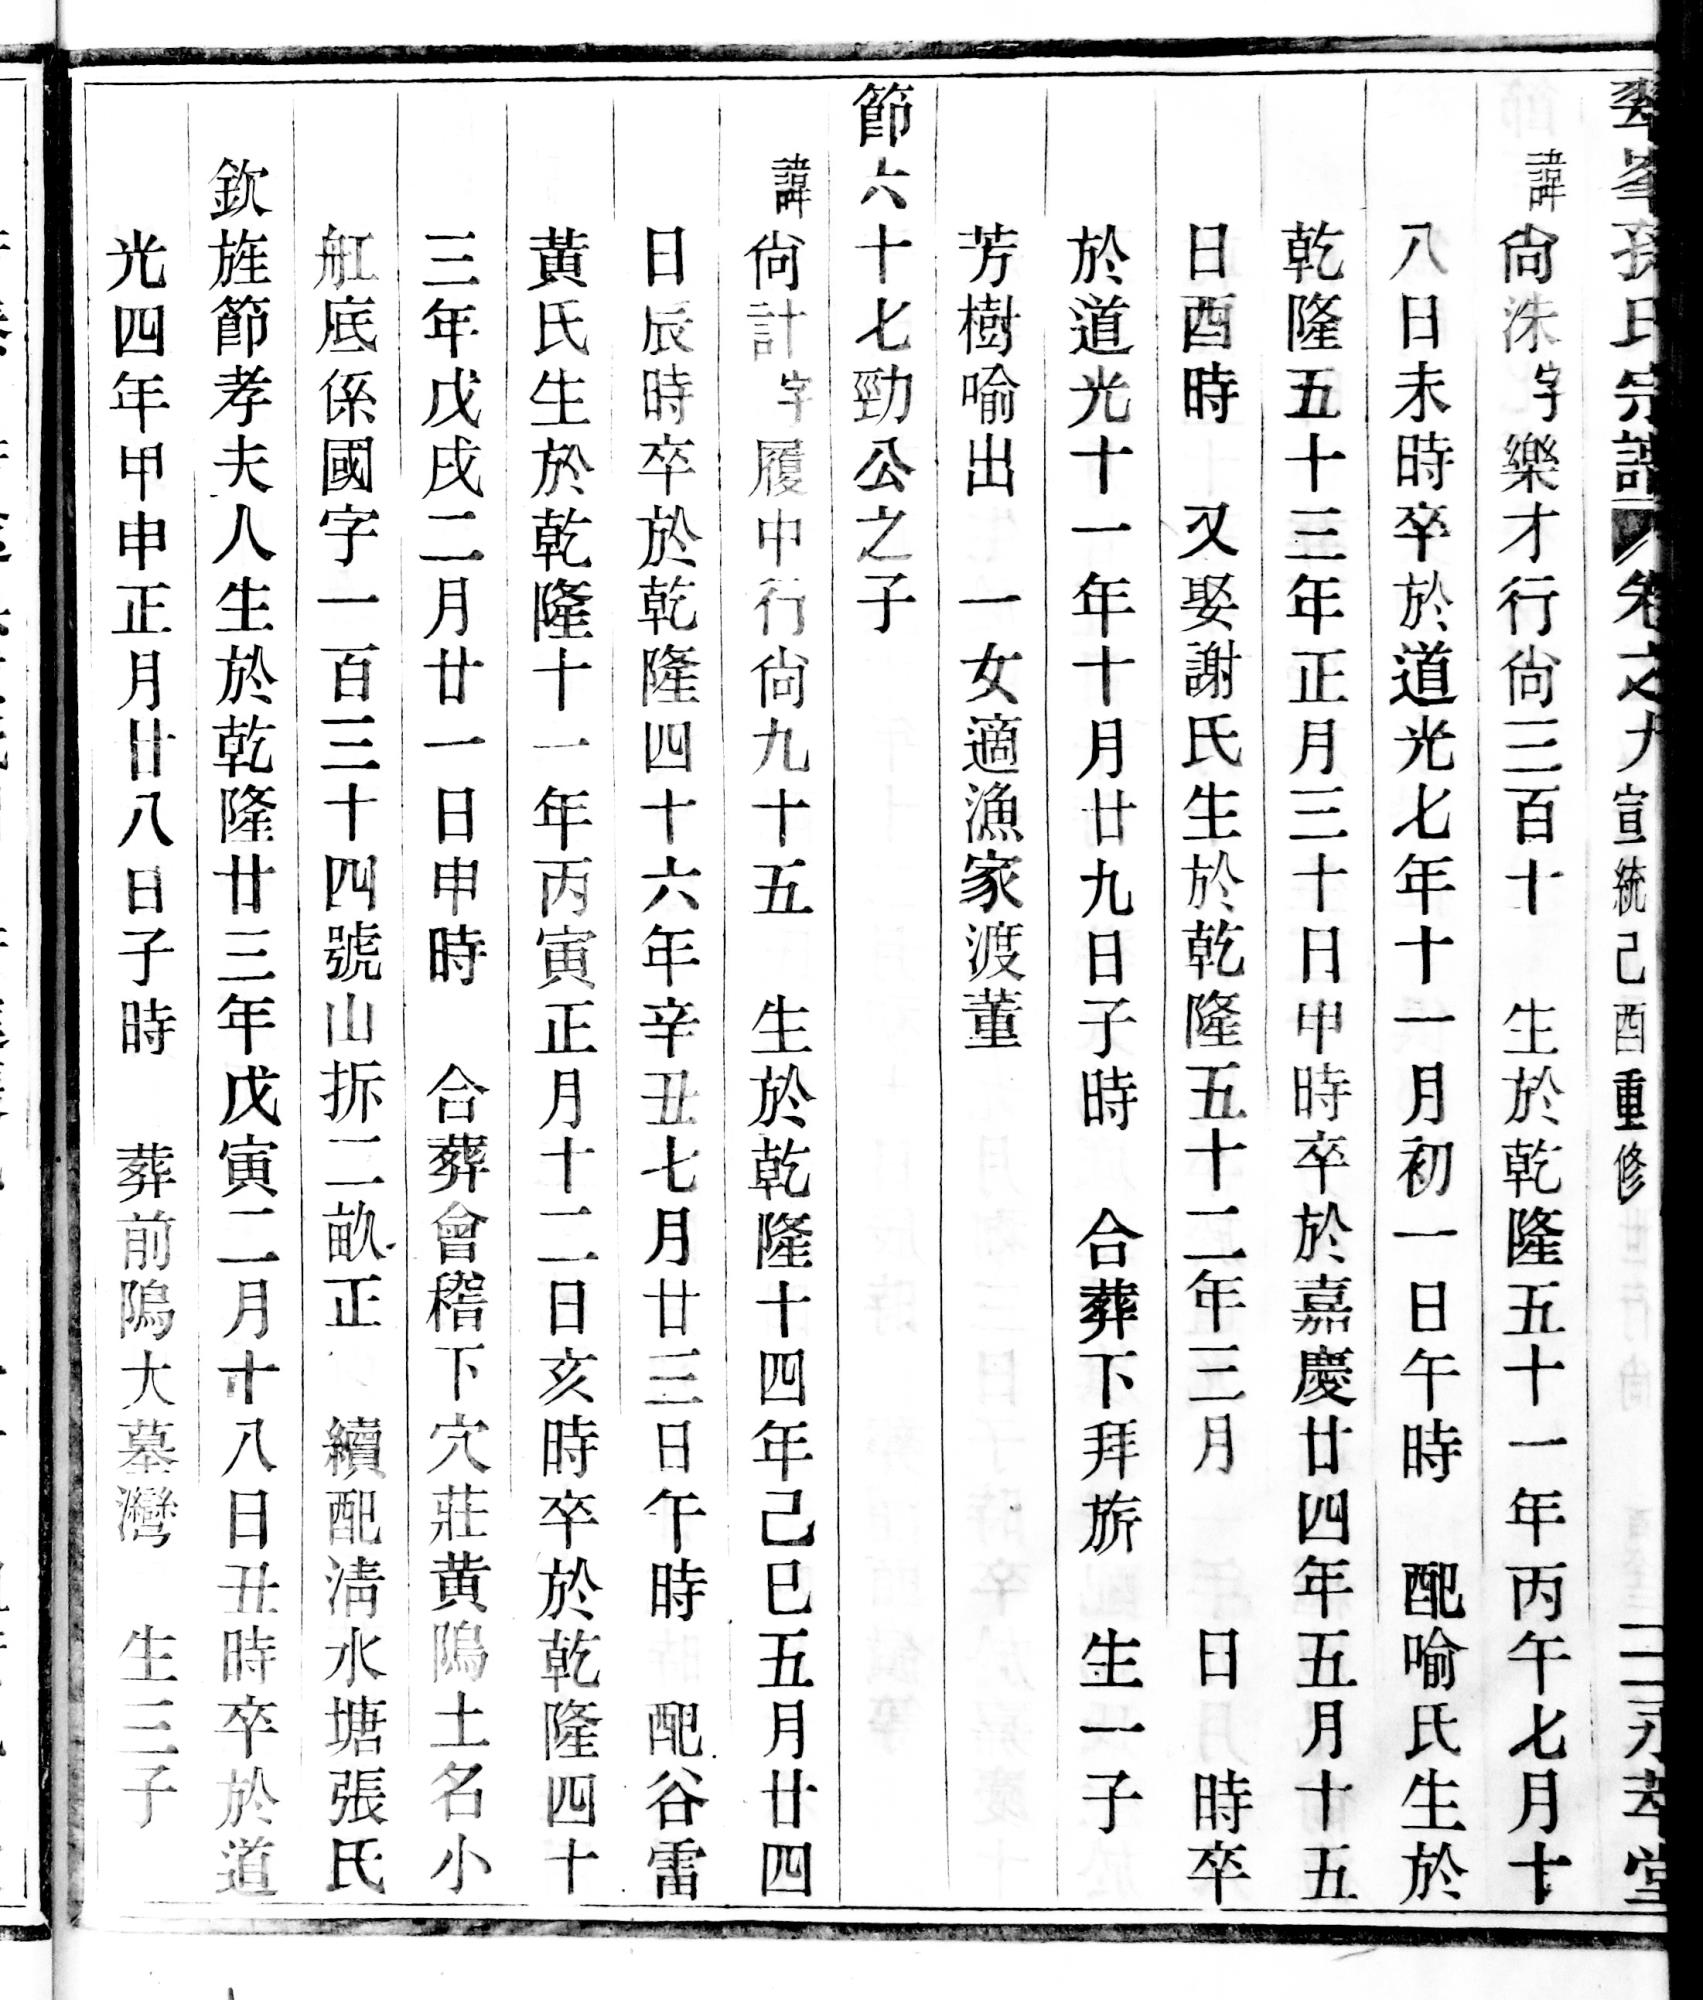 翠峯孫氏宗譜 卷之九 宣統己酉重修 二 永萃堂
諱尙洙字樂才行尙三百十 生於乾隆五十一年丙午七月十
八日未時卒於道光七年十一月初一日午時 配喻氏生於
乾隆五十三年正月三十日申時卒於嘉慶廿四年五月十五
日酉時 又娶謝氏生於乾隆五十二年三月 日 時卒
於道光十一年十月廿九日子時 合葬下拜旂 生一子
芳樹喻出 一女適漁家渡董
節六十七勁公之子
諱尙計字履中行尙九十五 生於乾隆十四年己巳五月廿四
日辰時卒於乾隆四十六年辛丑七月廿三日午時 配谷雷
黃氏生於乾隆十一年丙寅正月十二日亥時卒於乾隆四十
三年戊戌二月廿一日申時 合葬曾稽下穴莊黃隖土名小
舡底係國字一百三十四號山拆二畝正 續配清水塘張氏
欽旌節孝夫人生於乾隆廿三年戊寅二月十八日丑時卒於道
光四年甲申正月廿八日子時 葬前隖大墓灣 生三子